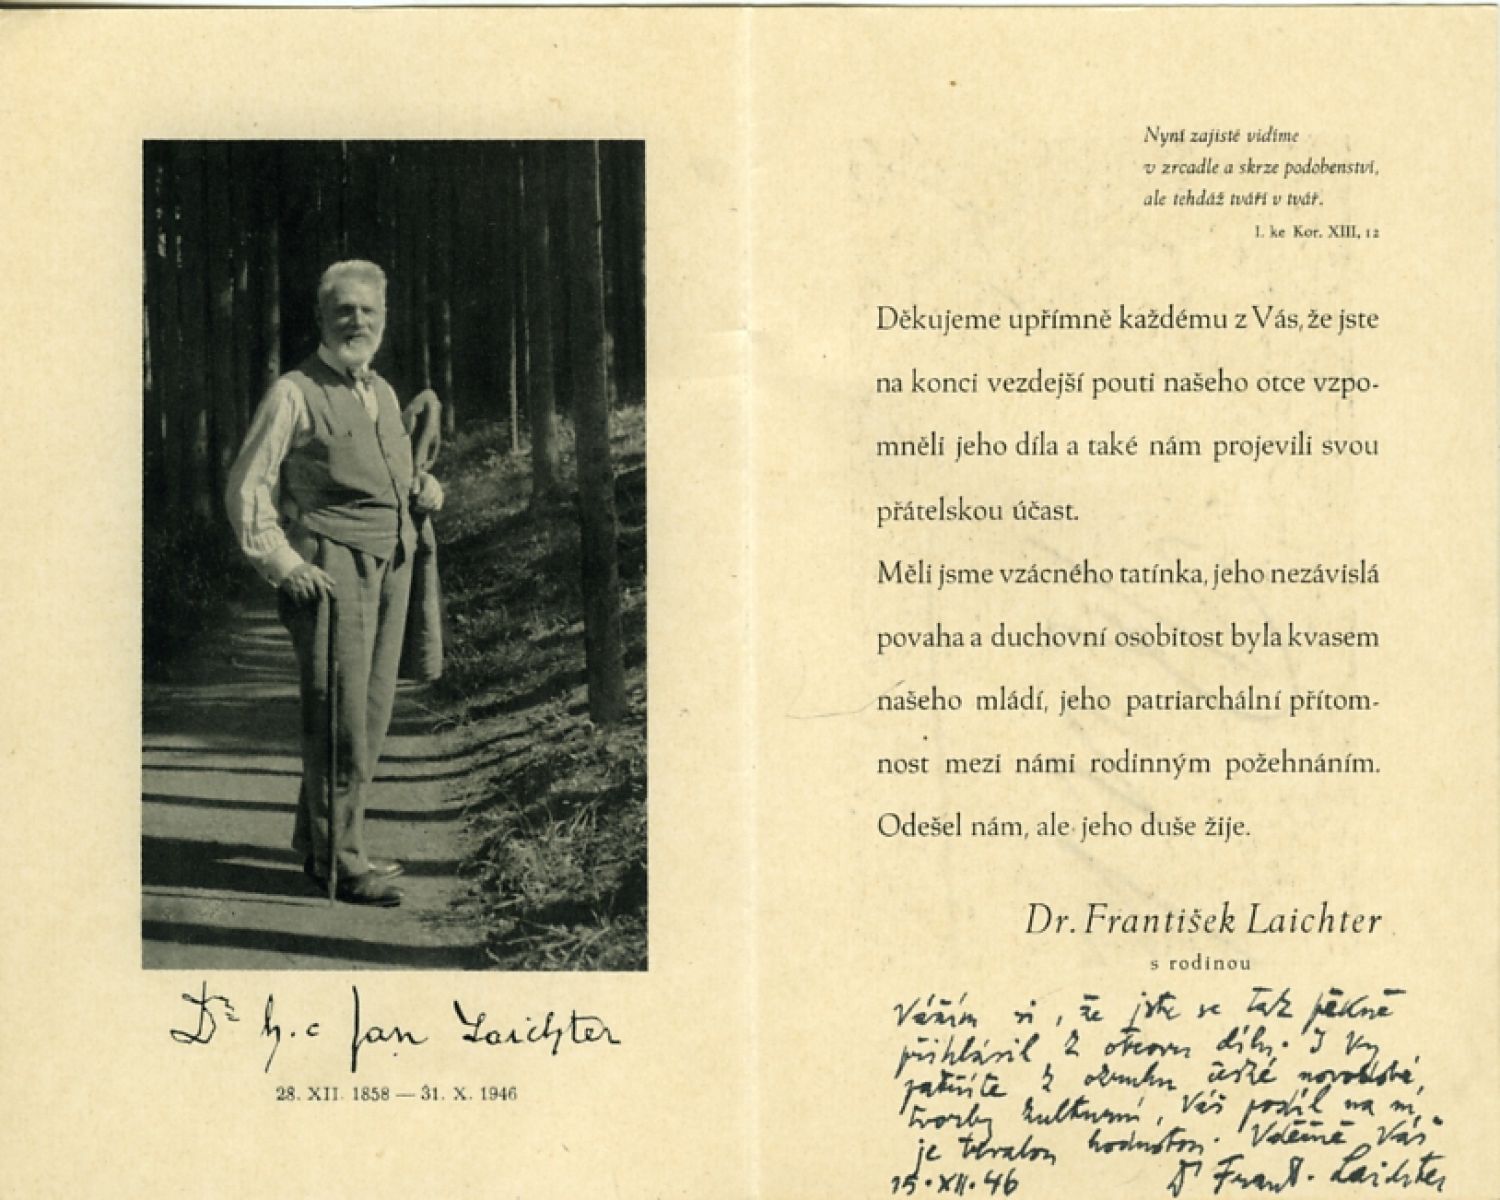 Dr h.c Jan Laichter
28. XII. 1858 — 31. X. 1946
Nyní zajisté vidíme
v zrcadle a skrze podobenství,
ale tehdáž tváří v tvář.
I. ke Kor. XIII, 12
Děkujeme upřímně každému z Vás, že jste
na konci vezdejší pouti našeho otce vzpo-
mněli jeho díla a také nám projevili svou
přátelskou účast.
Měli jsme vzácného tatínka, jeho nezávislá
povaha a duchovní osobitost byla kvasem
našeho mládí, jeho patriarchální přítom-
nost mezi námi rodinným požehnáním.
Odešel nám, ale jeho duše žije.
Dr. František Laichter
s rodinou
Vážím si, že jste se tak pěkně
přihlásil k otcovu dílu. I Vy
patříte k okruhu české novodobé
tvorby kulturní, Váš podíl na ní
je trvalou hodnotou. Vděčně Váš
15. XII. 46 Dr Frant. Laichter